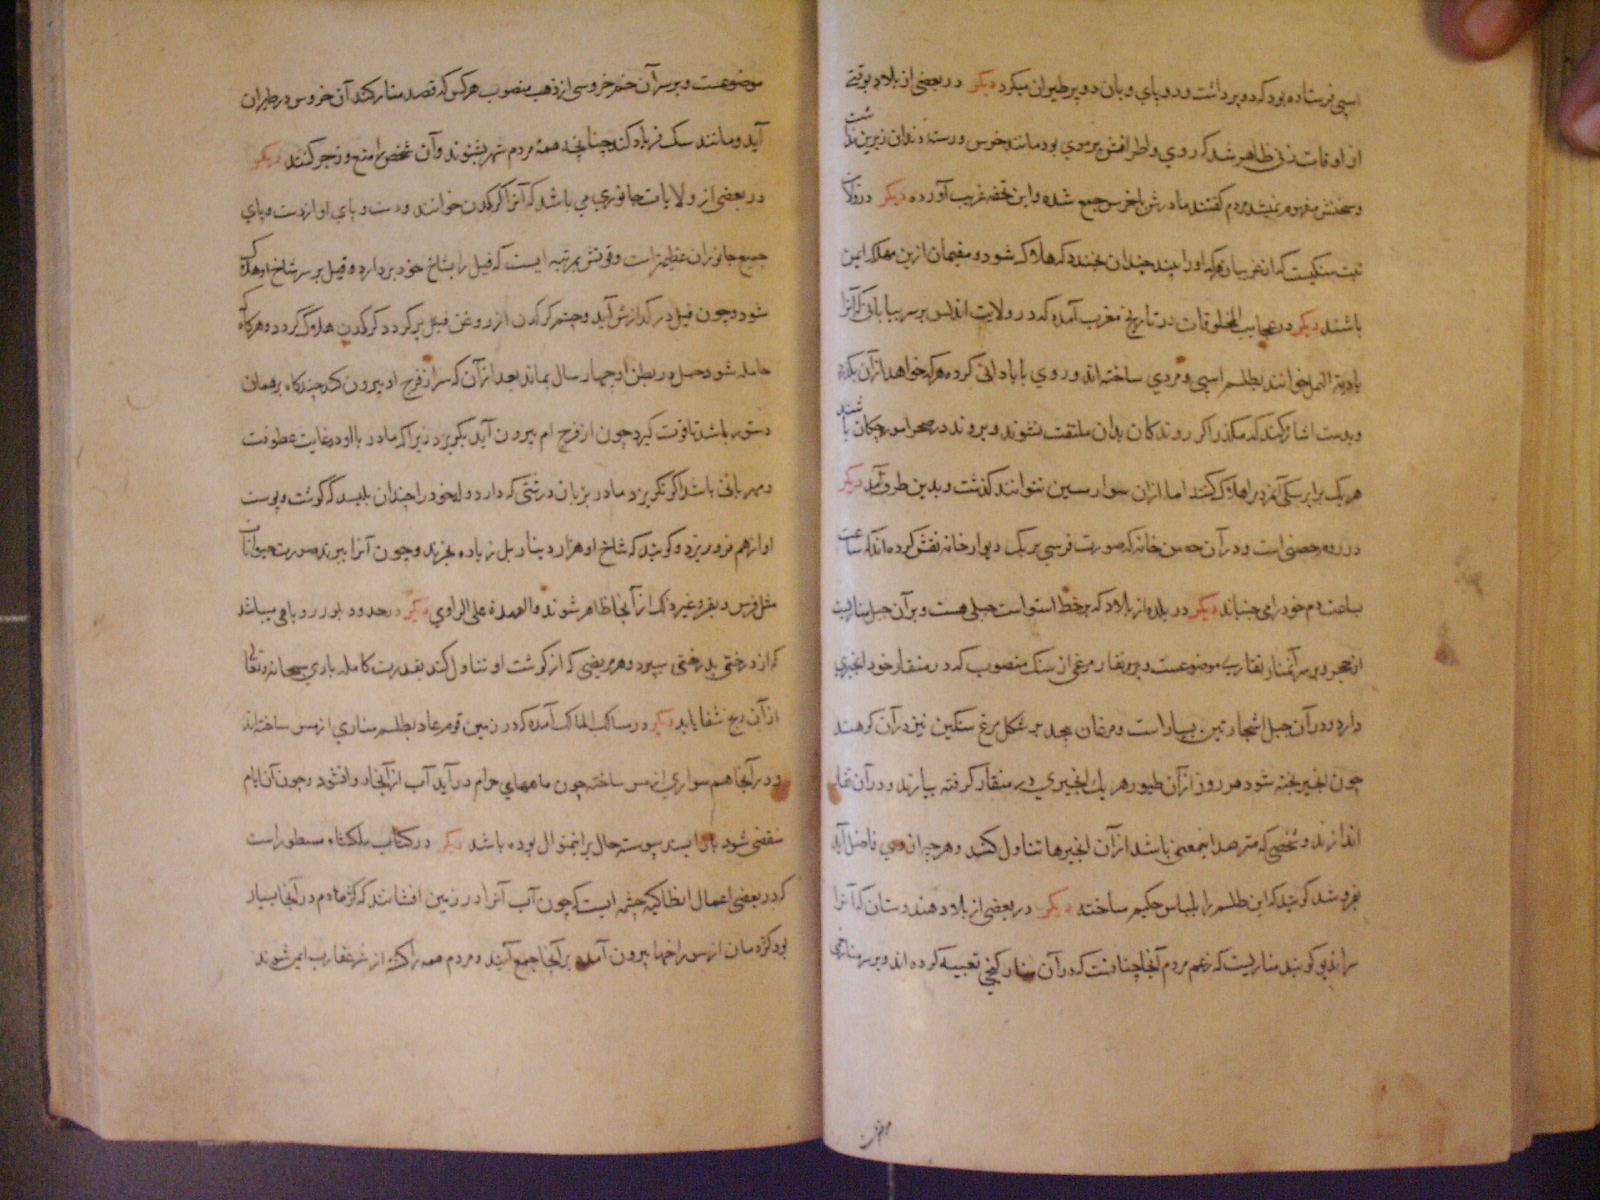 اسپی فرستاده بود که دو پر داشت و دو پای و بان دو پر طیران میکرد دیکر در بعضی از بلاد بوقتی
از اوقات زنی ظاهر شد که روی و اطرافش پر موی بود مانند خرس و رستهٔ دندان زیرین نداشت
و سخنش مفهوم نمیشد مردم کفتند مادرش با خرس جمع شده و این تحفه غریب آورده دیکر در ولایت
تبت سنکیست که از غریبان هرکه او را بیند چندان بخندد که هلاک شود و مقیمان ازین مهلکه ایمن
باشند دیکر در عجایب المخلوقات و تاریخ مغرب آمده که در ولایت اندلس بر سر بیابانی که آنرا
بادیة النمل خوانند بطلسم اسپی و مردی ساخته اند و روی با بادانی کرده هرکه خواهد از آن بکذرد
و بدست اشاره کند که مکذر اکر روندکان بدان ملتفت نشوند و بروند در صحرا مورچکان باشند
هر یک برابر سکی آنمرد را هلاک کنند اما از ان سوار مسین نتوانند کذشت و بدین طرف آمد دیکر
در رده حصنی است و در آن حصن خانه که صورت فرسی بر یک دیوار خانه نقش کرده اند که ساعت
بساعت دم خود را می جنباند دیکر در بلده از بلاد که بر خط استواست جبلی هست و بر آن جبل مناریست
از حجر و بر سر آنمنار نقاری موضوعست و بر نقار مرغی از سنک منصوب که در منقار خود انجیری
دارد و در آن جبل اشجار تین بسیار است و مرغان بیحد بر شکل مرغ سنکین نیز در آن کوهند
چون انجیر پخته شود هر روز از آن طیور هر یک انجیری در منقار کرفته بیارند و در آن نقار
اندازند و شخصی که مترصد اینمعنی باشد از آن انجیرها تناول کند و هرچه از وی فاضل آید
بفروشد کویند که این طلسم را بلیناس حکیم ساخته دیکر در بعضی از بلاد هندوستان که آنرا
سراندیو کویند مناریست که زعم مردم آنجا چنانست که در آن منار کنجی تعبیه کرده اند و بر سر منار خمی
موضوعست و بر سر آن خم خروسی از ذهب منصوب هر کس که قصد منار کند آن خروس در طیران
آید و مانند سک فریاد کند چنانچه همهٔ مردم شهر بشنوند و آن شخص را منع و زجر کنند دیکر
در بعضی از ولایات جانوری می باشد که آنرا کرکدن خوانند و دست و پای او از دست و پای
جمیع جانوران عظیمتر است و قوتش بمرتبه ایست که فیل را بشاخ خود بردارد و فیل بر سر شاخ او هلاک
شود و چون فیل در کدازش آید و چشم کرکدن از روغن فیل پر کردد کرکدن هلاک کردد و هرکاه
حامله شود حمل در بطن او چهار سال بماند بعد از آن که سر از فرج او بیرون کند چندکاه بر همان
دستور باشد تا قوت کیرد چون از فرج ام بیرون آید بکریزد زیرا که مادر با او در غایت عطوفت
و مهربانی باشد اکر نکریزد مادر بزبان درشتی که دارد ولد خود را چندان بلیسد که کوشت و پوست
او از هم فرو ریزد و کویند که شاخ او هزار دینار بل زیاده بخرند و چون آنرا ببرند صورت حیوانات
مثل فرس و بقر و غیر ذلک از آنجا ظاهر شوند و العهدة علی الراوی دیکر در حدود روباهی میباشد
که از درختی بدرختی بپرد و هر مریضی که از کوشت او تناول کند بقدرت کامله باری سبحانه و تعالی
از آن رنج شفا یابد دیکر در مسالک الممالک آمده که در زمین قوم عاد بطلسم مناری از مس ساخته اند
و در آنجا هم سواری از مس ساخته چون ماههای حرام درآید آب از آنجا روان شود و چون آن ایام
منقضی شود باز ایستد پیوسته حال بر اینمنوال بوده باشد دیکر در کتاب ملکشاه مسطور است
که در بعضی اعمال انطاکیه چشمه ایست که چون آب آنرا در زمین افشانند که کژدم در آنجا بسیار
بود کژدمان از سوراخها بیرون آمده بر آنجا جمع آیند و مردم همه را کشته از شر عقارب ایمن شوند